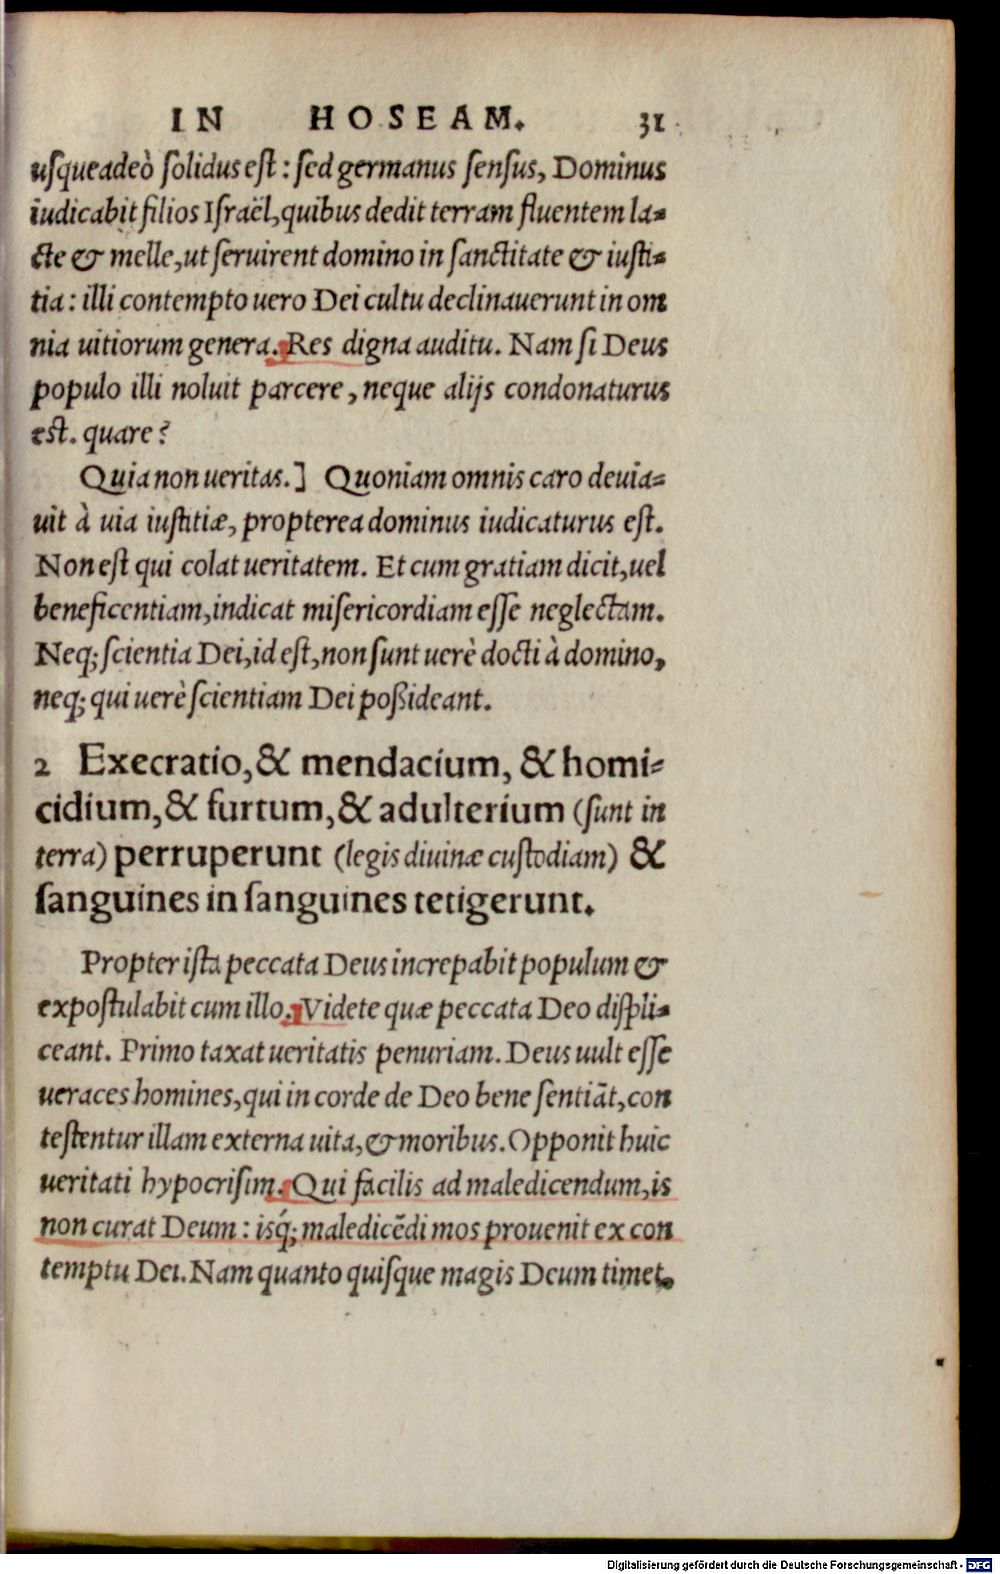 IN HOSEAM. 31
usqueadeò solidus est: sed germanus sensus, Dominus
iudicabit filios Israël, quibus dedit terram fluentem la-
cte & melle, ut seruirent domino in sanctitate & iusti-
tia: illi contempto uero Dei cultu declinauerunt in om
nia uitiorum genera. Res digna auditu. Nam si Deus
populo illi noluit parcere, neque alijs condonaturus
est. quare?
Quia non ueritas.] Quoniam omnis caro deuia-
uit à uia iustitiæ, propterea dominus iudicaturus est.
Non est qui colat ueritatem. Et cum gratiam dicit, uel
beneficentiam, indicat misericordiam esse neglectam.
Neq; scientia Dei, id est, non sunt uerè docti à domino,
neq; qui uerè scientiam Dei poßideant.
2 Execratio, & mendacium, & homi-
cidium, & furtum, & adulterium (sunt in
terra) perruperunt (legis diuinæ custodiam) &
sanguines in sanguines tetigerunt.
Propter ista peccata Deus increpabit populum &
expostulabit cum illo. Videte quæ peccata Deo displi-
ceant. Primo taxat ueritatis penuriam. Deus uult esse
ueraces homines, qui in corde de Deo bene sentiãt, con
testentur illam externa uita, & moribus. Opponit huic
ueritati hypocrisim. Qui facilis ad maledicendum, is
non curat Deum: isq́; maledicẽdi mos prouenit ex con
temptu Dei. Nam quanto quisque magis Deum timet,
Digitalisierung gefördert durch die Deutsche Forschungsgemeinschaft - DFG